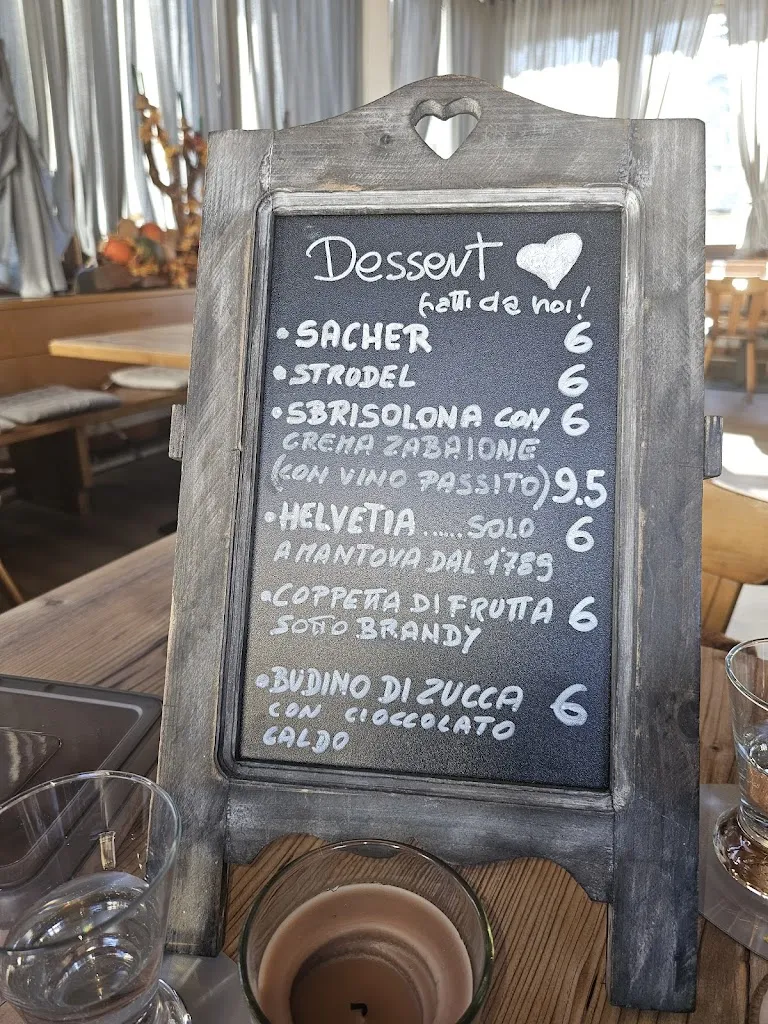 Dessert
fatti da noi!
• SACHER 6
• STRUDEL 6
• SBRISOLONA CON 6
CREMA ZABAIONE
(CON VINO PASSITO) 9.5
• HELVETIA ...... SOLO 6
A MANTOVA DAL 1789
• COPPETTA DI FRUTTA 6
SOTTO BRANDY
• BUDINO DI ZUCCA 6
CON CIOCCOLATO
CALDO